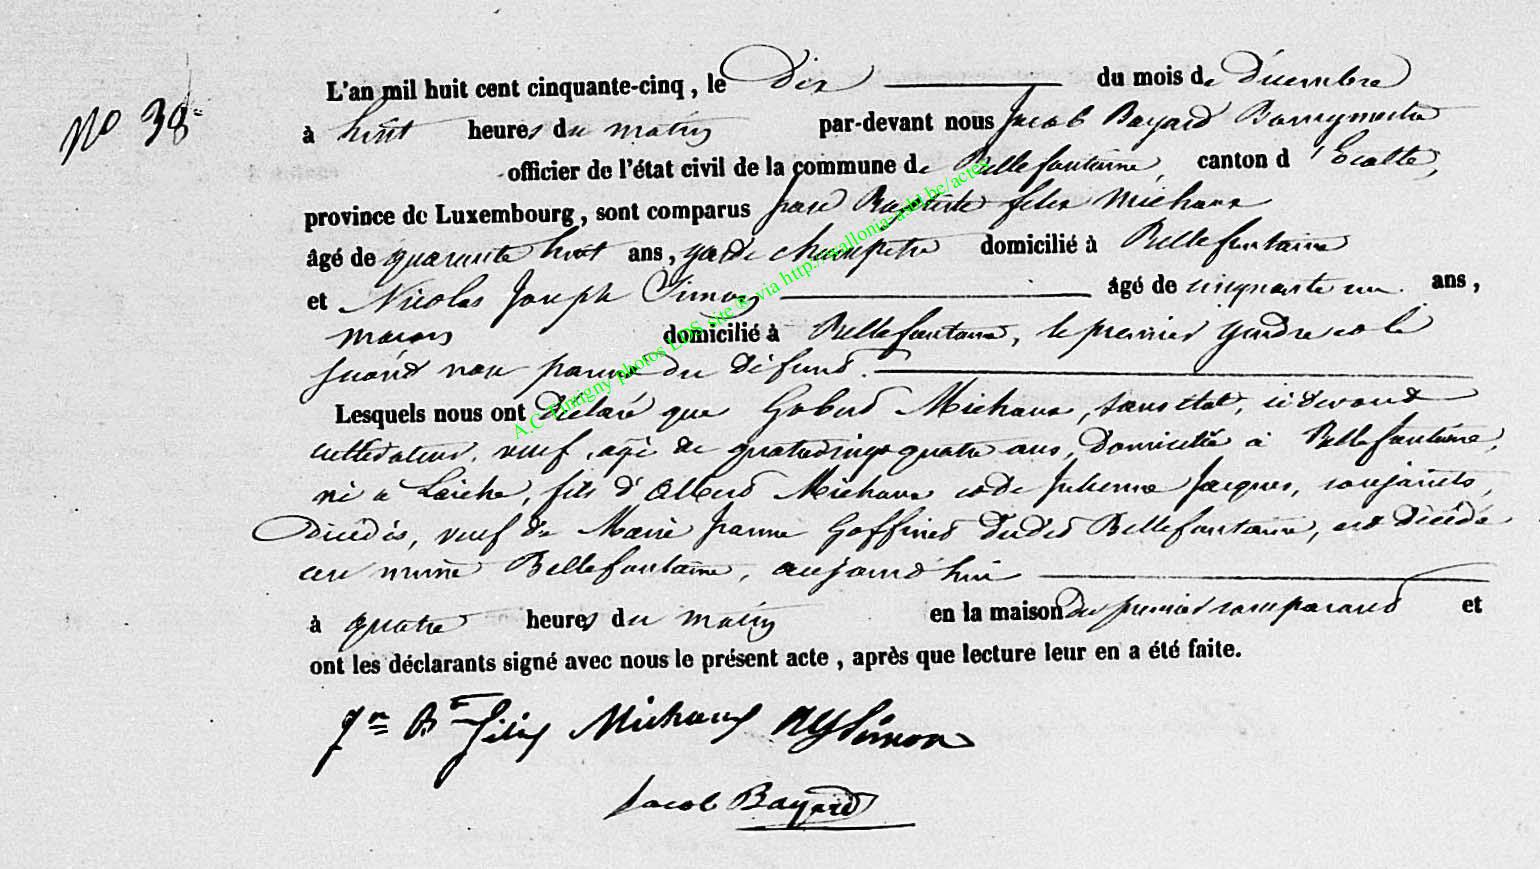 No 38.
L'an mil huit cent cinquante-cinq, le Dix du mois de Décembre
à huit heures du matin par-devant nous Jacob Bayard Bourgmestre
officier de l'état civil de la commune de Bellefontaine, canton d'Etalle,
province de Luxembourg, sont comparus Jean Baptiste felix Michaux
âgé de quarante huit ans, garde champetre domicilié à Bellefontaine
et Nicolas Joseph Simon âgé de cinquante un ans,
maçon domicilié à Bellefontaine, le premier gendre et le
second non parent du défunt.
Lesquels nous ont déclaré que Gobert Michaux, sans état, ci devant
cultivateur, veuf, agé de quatrevingt quatre ans, domicilié à Bellefontaine,
né à Laiche, fils d'Albert Michaux et de Julienne Jacques, conjoints,
Décédés, veuf de Marie Jeanne Goffinet dudit Bellefontaine, est décédé
au même Bellefontaine, aujourd'hui
à quatre heures du matin en la maison du premier comparant et
ont les déclarants signé avec nous le présent acte, après que lecture leur en a été faite.
Jn Bte felix Michaux NJSimon
Jacob Bayard
A.C Tintigny photos LDS site & via http://wallonia-asbl.be/actes